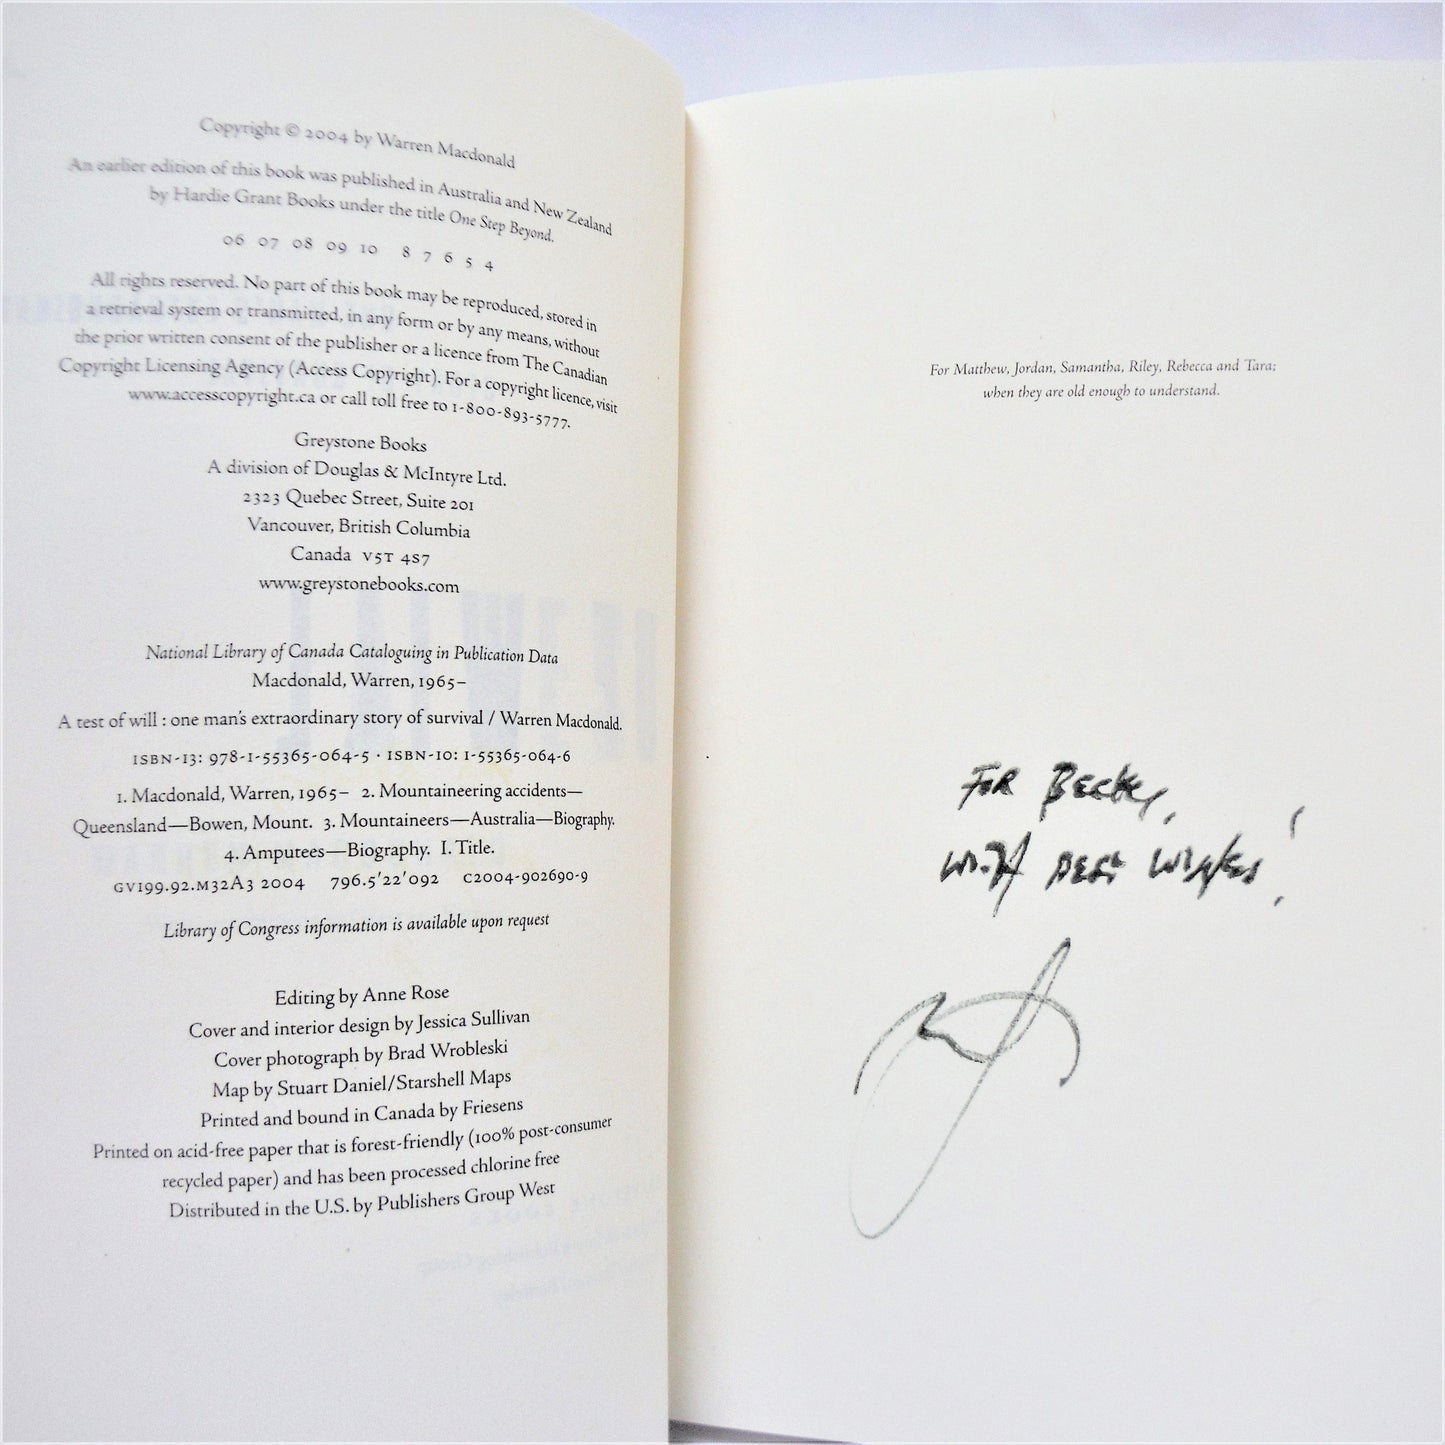 Copyright © 2004 by Warren Macdonald
An earlier edition of this book was published in Australia and New Zealand
by Hardie Grant Books under the title One Step Beyond.
06 07 08 09 10 8 7 6 5 4
All rights reserved. No part of this book may be reproduced, stored in
a retrieval system or transmitted, in any form or by any means, without
the prior written consent of the publisher or a licence from The Canadian
Copyright Licensing Agency (Access Copyright). For a copyright licence, visit
www.accesscopyright.ca or call toll free to 1-800-893-5777.
Greystone Books
A division of Douglas & McIntyre Ltd.
2323 Quebec Street, Suite 201
Vancouver, British Columbia
Canada V5T 4S7
www.greystonebooks.com
National Library of Canada Cataloguing in Publication Data
Macdonald, Warren, 1965–
A test of will : one man's extraordinary story of survival / Warren Macdonald.
ISBN-13: 978-1-55365-064-5 · ISBN-10: 1-55365-064-6
1. Macdonald, Warren, 1965– 2. Mountaineering accidents—
Queensland—Bowen, Mount. 3. Mountaineers—Australia—Biography.
4. Amputees—Biography. I. Title.
GV199.92.M32A3 2004 796.5'22'092 C2004-902690-9
Library of Congress information is available upon request
Editing by Anne Rose
Cover and interior design by Jessica Sullivan
Cover photograph by Brad Wrobleski
Map by Stuart Daniel/Starshell Maps
Printed and bound in Canada by Friesens
Printed on acid-free paper that is forest-friendly (100% post-consumer
recycled paper) and has been processed chlorine free
Distributed in the U.S. by Publishers Group West
For Matthew, Jordan, Samantha, Riley, Rebecca and Tara;
when they are old enough to understand.
FOR BECKY,
WITH BEST WISHES!